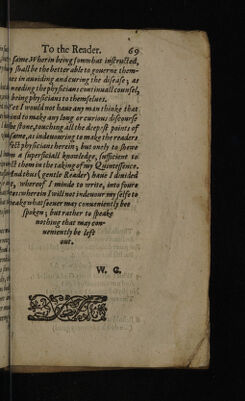 To the Reader. 69
same. Wherin being somwhat instructed,
shall be the better able to governe them-
in avoiding and curing the disease; as
needing the physicians continuall counsel,
being physicians to themselves.
Yet I would not have any man thinke that
to make any long or curious discourse
the stone, touching all the deepest points of
same, as indevouring to make the readers
physicians herein; but onely to shewe
a superficiall knowledge, sufficient to
them in the taking of my Quintessence.
And thus (gentle Reader) have I divided
whereof I minde to write, into foure
wherein I will not indevour my selfe to
speake whatsoever may conveniently bee
spoken; but rather to speake
nothing that may con-
veniently be left
out.
W. G.